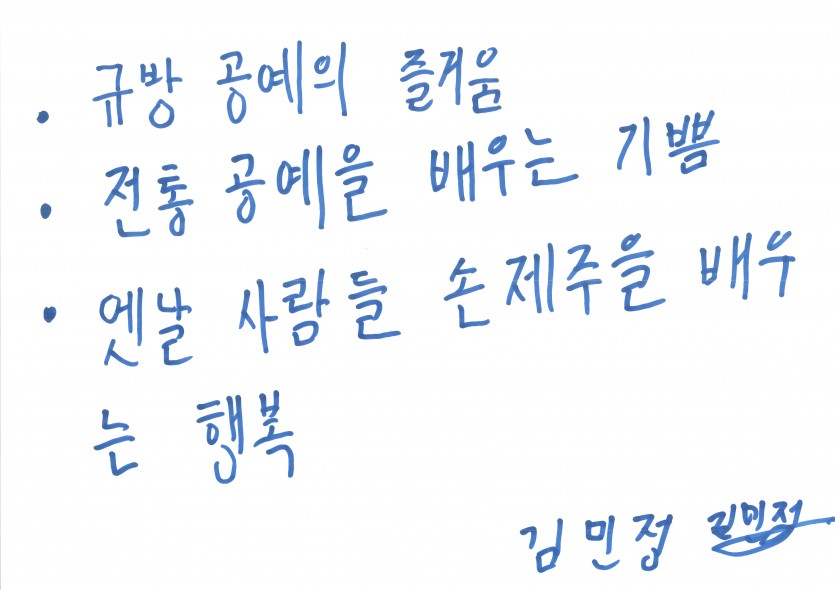 • 규방 공예의 즐거움
• 전통 공예을 배우는 기쁨
• 옛날 사람들 손제주을 배우
는 행복
김민정